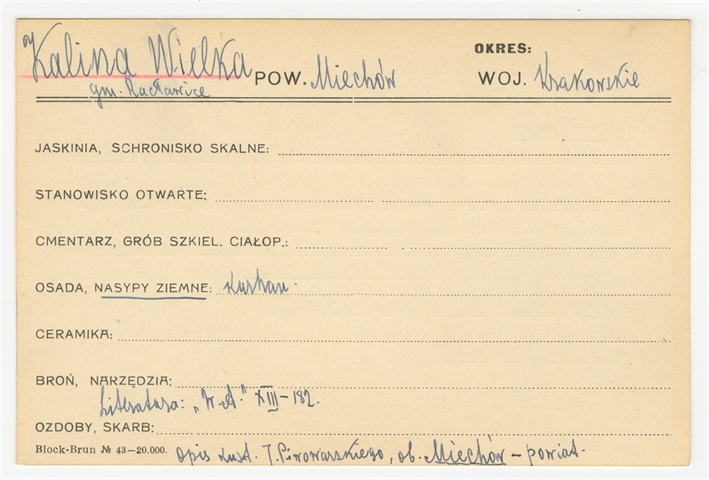 Kalina Wielka
OKRES:
POW. Miechów
WOJ. Krakowskie
gm. Racławice
JASKINIA, SCHRONISKO SKALNE:
STANOWISKO OTWARTE:
CMENTARZ, GRÓB SZKIEL. CIAŁOP.:
OSADA, NASYPY ZIEMNE: Kurhan.
CERAMIKA:
BROŃ, NARZĘDZIA:
Literatura: „W.A." XIII-182.
OZDOBY, SKARB:
Block-Brun № 43-20.000. Opis kust. J. Piwowarskiego, ob. Miechów - powiat.